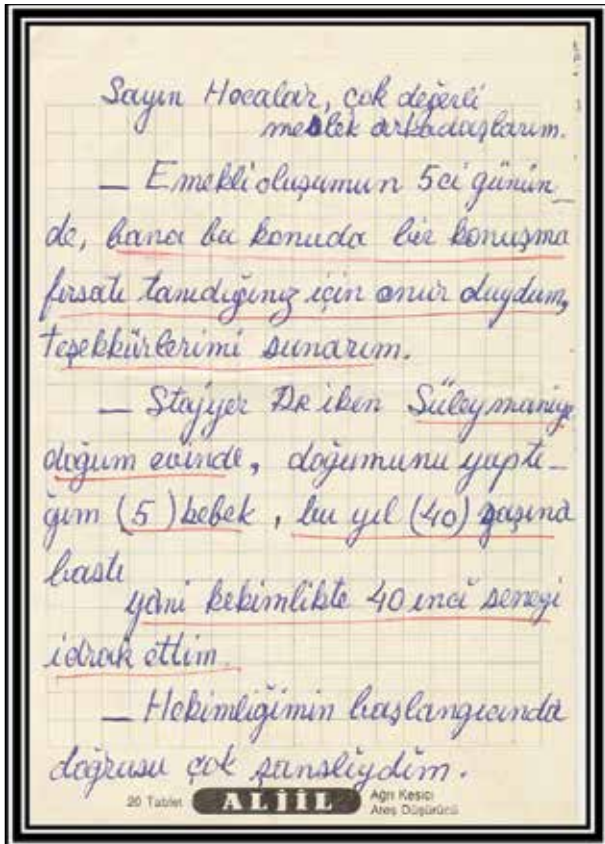 Sayın Hocalar, çok değerli
meslek arkadaşlarım.
— Emekli oluşumun 5ci günün_
de, bana bu konuda bir konuşma
fırsatı tanıdığınız için onur duydum,
teşekkürlerimi sunarım.
— Stajyer Dr iken Süleymaniye
doğum evinde, doğumunu yaptı_
ğım (5) bebek, bu yıl (40) yaşına
bastı
yâni hekimlikte 40 ıncı seneyi
idrak ettim.
— Hekimliğimin başlangıcında
doğrusu çok şanslıydım.
20 Tablet ALJİL Ağrı Kesici
Ateş Düşürücü